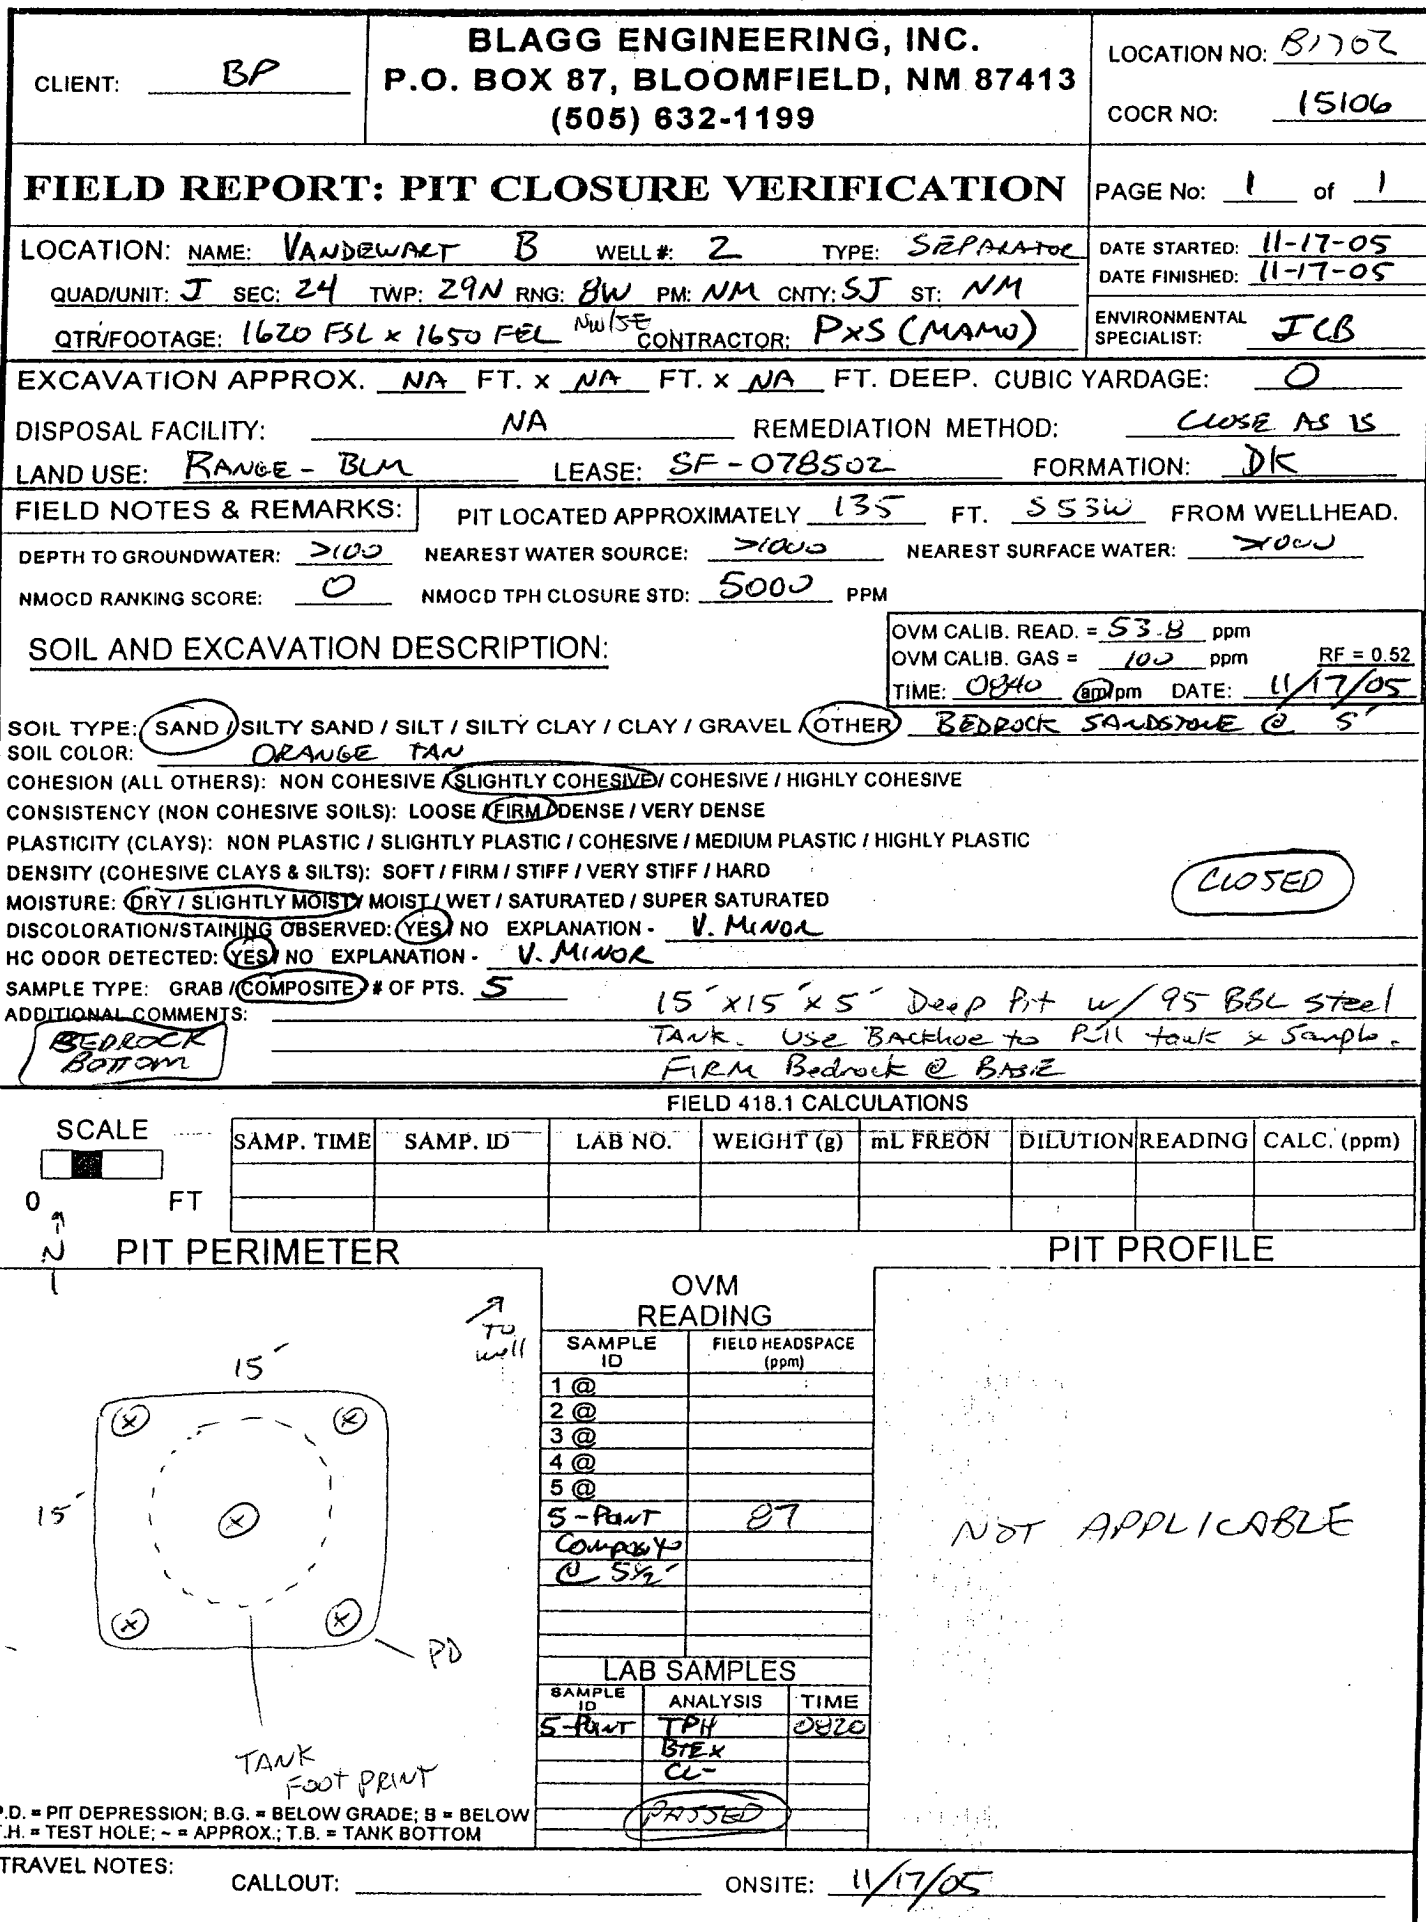 CLIENT: BP
BLAGG ENGINEERING, INC.
P.O. BOX 87, BLOOMFIELD, NM 87413
(505) 632-1199
LOCATION NO: B1702
COCR NO: 15106
FIELD REPORT: PIT CLOSURE VERIFICATION
PAGE No: 1 of 1
LOCATION: NAME: VANDEWART B WELL #: 2 TYPE: SEPARATOR
DATE STARTED: 11-17-05
DATE FINISHED: 11-17-05
QUAD/UNIT: J SEC: 24 TWP: 29N RNG: 8W PM: NM CNTY: SJ ST: NM
QTR/FOOTAGE: 1620 FSL x 1650 FEL NW/SE CONTRACTOR: PxS (MAMO)
ENVIRONMENTAL
SPECIALIST: JCB
EXCAVATION APPROX. NA FT. x NA FT. x NA FT. DEEP. CUBIC YARDAGE: 0
DISPOSAL FACILITY: NA REMEDIATION METHOD: CLOSE AS IS
LAND USE: RANGE - BLM LEASE: SF-078502 FORMATION: DK
FIELD NOTES & REMARKS: PIT LOCATED APPROXIMATELY 135 FT. S53W FROM WELLHEAD.
DEPTH TO GROUNDWATER: >100 NEAREST WATER SOURCE: >1000 NEAREST SURFACE WATER: >1000
NMOCD RANKING SCORE: 0 NMOCD TPH CLOSURE STD: 5000 PPM
SOIL AND EXCAVATION DESCRIPTION:
OVM CALIB. READ. = 53.8 ppm
OVM CALIB. GAS = 100 ppm RF = 0.52
TIME: 0840 am/pm DATE: 11/17/05
SOIL TYPE: SAND / SILTY SAND / SILT / SILTY CLAY / CLAY / GRAVEL / OTHER BEDROCK SANDSTONE @ 5'
SOIL COLOR: ORANGE TAN
COHESION (ALL OTHERS): NON COHESIVE / SLIGHTLY COHESIVE / COHESIVE / HIGHLY COHESIVE
CONSISTENCY (NON COHESIVE SOILS): LOOSE / FIRM / DENSE / VERY DENSE
PLASTICITY (CLAYS): NON PLASTIC / SLIGHTLY PLASTIC / COHESIVE / MEDIUM PLASTIC / HIGHLY PLASTIC
DENSITY (COHESIVE CLAYS & SILTS): SOFT / FIRM / STIFF / VERY STIFF / HARD
CLOSED
MOISTURE: DRY / SLIGHTLY MOIST / MOIST / WET / SATURATED / SUPER SATURATED
DISCOLORATION/STAINING OBSERVED: YES / NO EXPLANATION - V. MINOR
HC ODOR DETECTED: YES / NO EXPLANATION - V. MINOR
SAMPLE TYPE: GRAB / COMPOSITE # OF PTS. 5
ADDITIONAL COMMENTS: 15' x 15' x 5' Deep Pit w/ 95 BBL Steel
TANK. Use BACKhoe to Pull tank & Sample.
FIRM Bedrock @ BASE
BEDROCK
BOTTOM
FIELD 418.1 CALCULATIONS
SCALE
0 FT
SAMP. TIME SAMP. ID LAB NO. WEIGHT (g) mL FREON DILUTION READING CALC. (ppm)
N
PIT PERIMETER
PIT PROFILE
TO
well
15'
15'
PD
TANK
FOOT PRINT
OVM
READING
SAMPLE
ID
FIELD HEADSPACE
(ppm)
1 @
2 @
3 @
4 @
5 @
5-Point 87
Composite
@ 5½'
NOT APPLICABLE
LAB SAMPLES
SAMPLE
ID
ANALYSIS TIME
5-Point TPH 0820
BTEX
CL-
PASSED
P.D. = PIT DEPRESSION; B.G. = BELOW GRADE; B = BELOW
T.H. = TEST HOLE; ~ = APPROX.; T.B. = TANK BOTTOM
TRAVEL NOTES:
CALLOUT:
ONSITE: 11/17/05